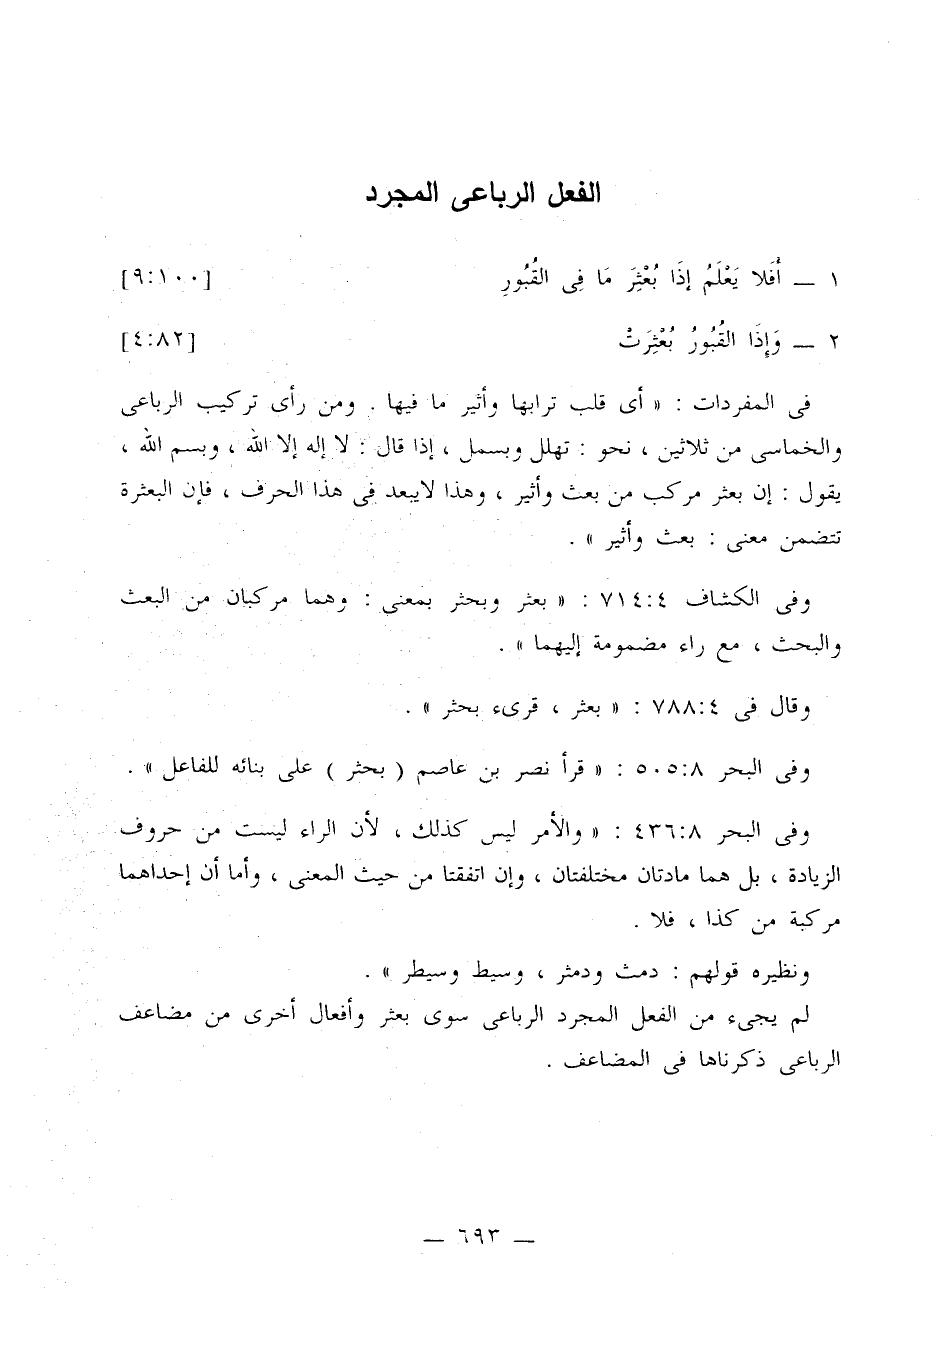 الفعل الرباعى المجرد
١ — أَفَلا يَعْلَمُ إِذَا بُعْثِرَ مَا فِى القُبُورِ [٩:١٠٠]
٢ — وَإِذَا القُبُورُ بُعْثِرَتْ [٤:٨٢]
فى المفردات : « أى قلب ترابها وأثير ما فيها . ومن رأى تركيب الرباعى
والخماسى من ثلاثين ، نحو : تهلل وبسمل ، إذا قال : لا إله إلا الله ، وبسم الله ،
يقول : إن بعثر مركب من بعث وأثير ، وهذا لايبعد فى هذا الحرف ، فإن البعثرة
تتضمن معنى : بعث وأثير » .
وفى الكشاف ٧١٤:٤ : « بعثر وبحثر بمعنى : وهما مركبان من البعث
والبحث ، مع راء مضمومة إليهما » .
وقال فى ٧٨٨:٤ : « بعثر ، قرىء بحثر » .
وفى البحر ٥٠٥:٨ : « قرأ نصر بن عاصم ( بحثر ) على بنائه للفاعل » .
وفى البحر ٤٣٦:٨ : « والأمر ليس كذلك ، لأن الراء ليست من حروف
الزيادة ، بل هما مادتان مختلفتان ، وإن اتفقتا من حيث المعنى ، وأما أن إحداهما
مركبة من كذا ، فلا .
ونظيره قولهم : دمث ودمثر ، وسيط وسيطر » .
لم يجىء من الفعل المجرد الرباعى سوى بعثر وأفعال أخرى من مضاعف
الرباعى ذكرناها فى المضاعف .
— ٦٩٣ —